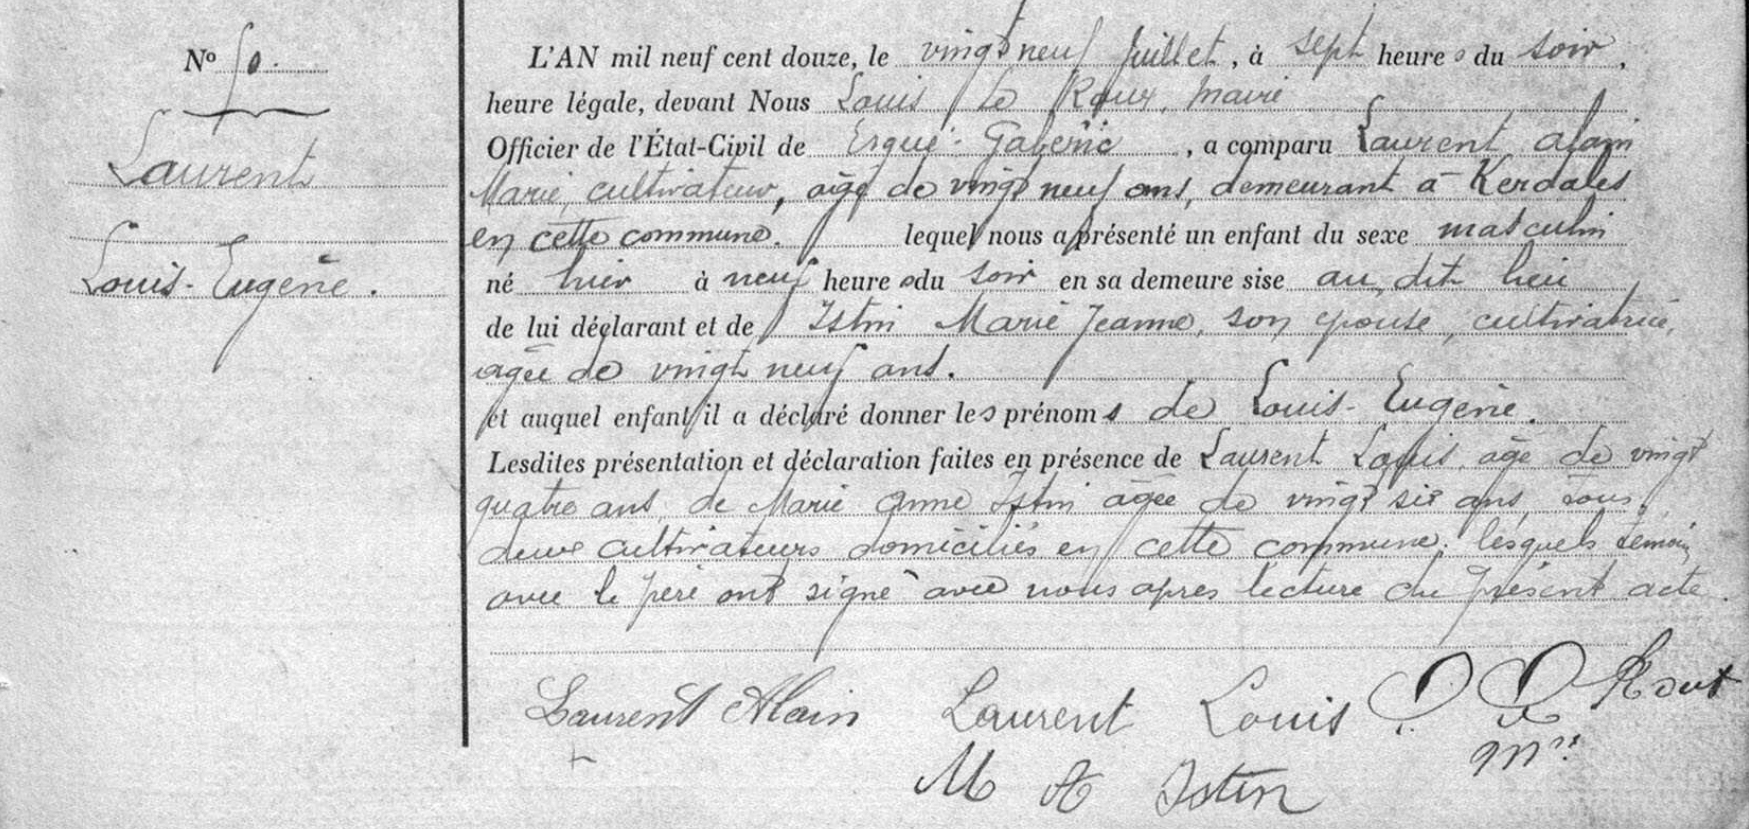 Nº 50.
Laurent
Louis-Eugène.
L'AN mil neuf cent douze, le vingt neuf Juillet, à sept heures du soir,
heure légale, devant Nous Louis Le Roux, Maire
Officier de l'État-Civil de Ergué-Gabéric, a comparu Laurent Alain
Marie, cultivateur, âgé de vingt neuf ans, demeurant à Kerdalès
en cette commune. lequel nous a présenté un enfant du sexe masculin
né hier à neuf heures du soir en sa demeure sise au dit lieu
de lui déclarant et de Istin Marie Jeanne, son épouse, cultivatrice,
âgée de vingt neuf ans.
et auquel enfant il a déclaré donner les prénoms de Louis-Eugène.
Lesdites présentation et déclaration faites en présence de Laurent Louis, âgé de vingt
quatre ans, de Marie Anne Istin âgée de vingt six ans, tous
deux cultivateurs domiciliés en cette commune; lesquels témoins
avec le père ont signé avec nous après lecture du présent acte.
Laurent Alain Laurent Louis L Le Roux
M A Istin